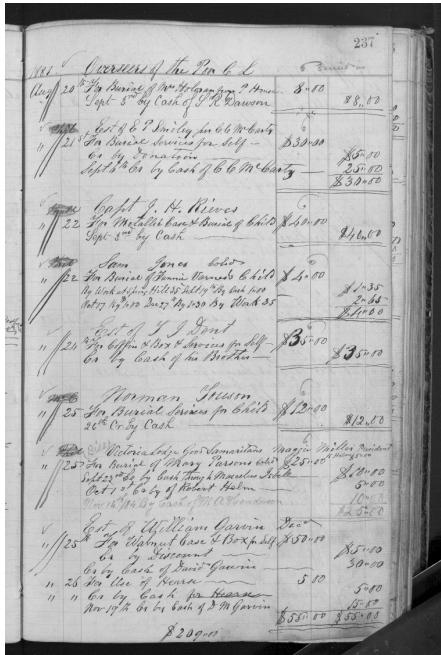 237
Overseers of the Poor C L
Aug 20th For Burial of Mrs Holgran from P House 8.00
Sept 5rd by Cash of S R Dawson $8.00
Est of E P Smiley per C C McCarty
" 21st For Burial Services for Self $30.00
Cr by Donation $5.00
Sept 5th Cr by Cash of C C McCarty 25.00
$30.00
Capt J. H. Rieves
" 22 For Metallic Case & Burial of Child $40.00
Sept 3rd by Cash $40.00
Sam Jones Cold
" 22 For Burial of Fannie Child $4.00
By Work at Spring Hill 35 Sept 19th By Cash 1.00 $1.35
Oct 17 By Dec 27th By By Work 35 2.65
$4.00
Est of T J Dent
" 24th For Coffin & Box & Services for Self $35.00
Cr by Cash of his Brother $35.00
Norman Touson
" 25 For Burial Services for Child $12.00
26th Cr by Cash $12.00
Victoria Lodge Good Samaritans Maggie Miller President
" 25 For Burial of Mary Parsons Cold $25.00
Sept 22nd Cr by Cash through $10.00
Oct 1st Cr by of Robert Helm 5.00
By Cash of M A Henderson 10.00
$25.00
Est. of William Garvin Decd
" 25th For Walnut Case & Box for Self $50.00
Cr by Discount $5.00
Cr by Cash of David Garvin 30.00
" 26 For Use of Hearse 5.00
" " Cr by Cash for Hearse 5.00
Nov 19th Cr by Cash of D M Garvin 15.00
$55.00 $55.00
$209.00